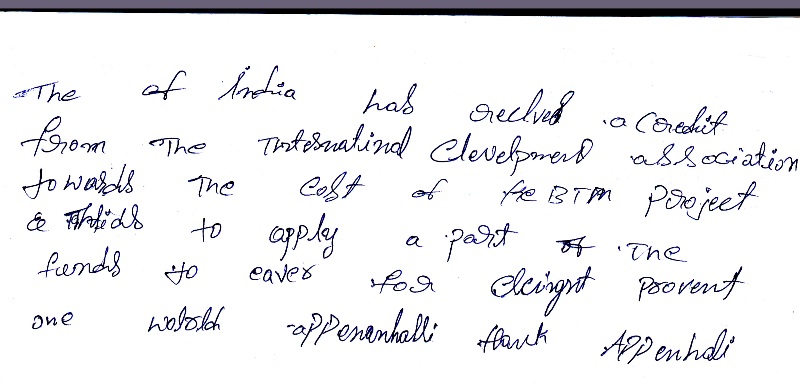 The of India has reclved a Coredit
from The Internatinal Clevelpment association
towards The Cost of the BTM Project
& to apply a part of The
funds to eaver for provent
one world appenanhalli tank Appenhali